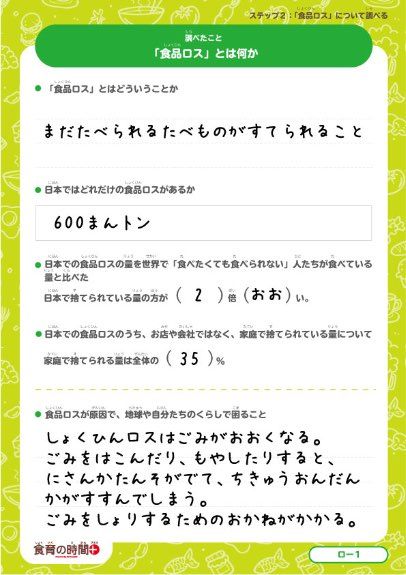 ステップ2:「食品ロス」について調べる
調べたこと
「食品ロス」とは何か
「食品ロス」とはどういうことか
まだたべられるたべものがすてられること
日本ではどれだけの食品ロスがあるか
600まんトン
日本での食品ロスの量を世界で「食べたくても食べられない」人たちが食べている
量と比べた
日本で捨てられている量の方が ( 2 ) 倍 (おお) い。
日本での食品ロスのうち、お店や会社ではなく、家庭で捨てられている量について
家庭で捨てられる量は全体の ( 35 ) %
食品ロスが原因で、地球や自分たちのくらしで困ること
しょくひんロスはごみがおおくなる。
ごみをはこんだり、もやしたりすると、
にさんかたんそがでて、ちきゅうおんだん
かがすすんでしまう。
ごみをしょりするためのおかねがかかる。
食育の時間+
ロー1